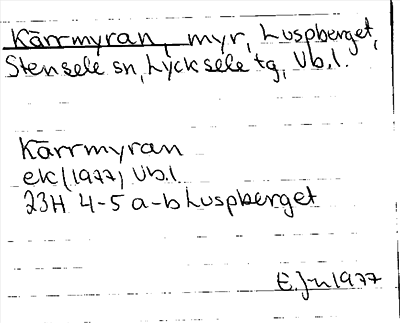 Kärrmyran, myr, Luspberget,
Stensele sn, Lycksele tg, Vb.l.
Kärrmyran
ek (1977) Vb.l.
23H 4-5 a-b Luspberget
E.J-n 1977